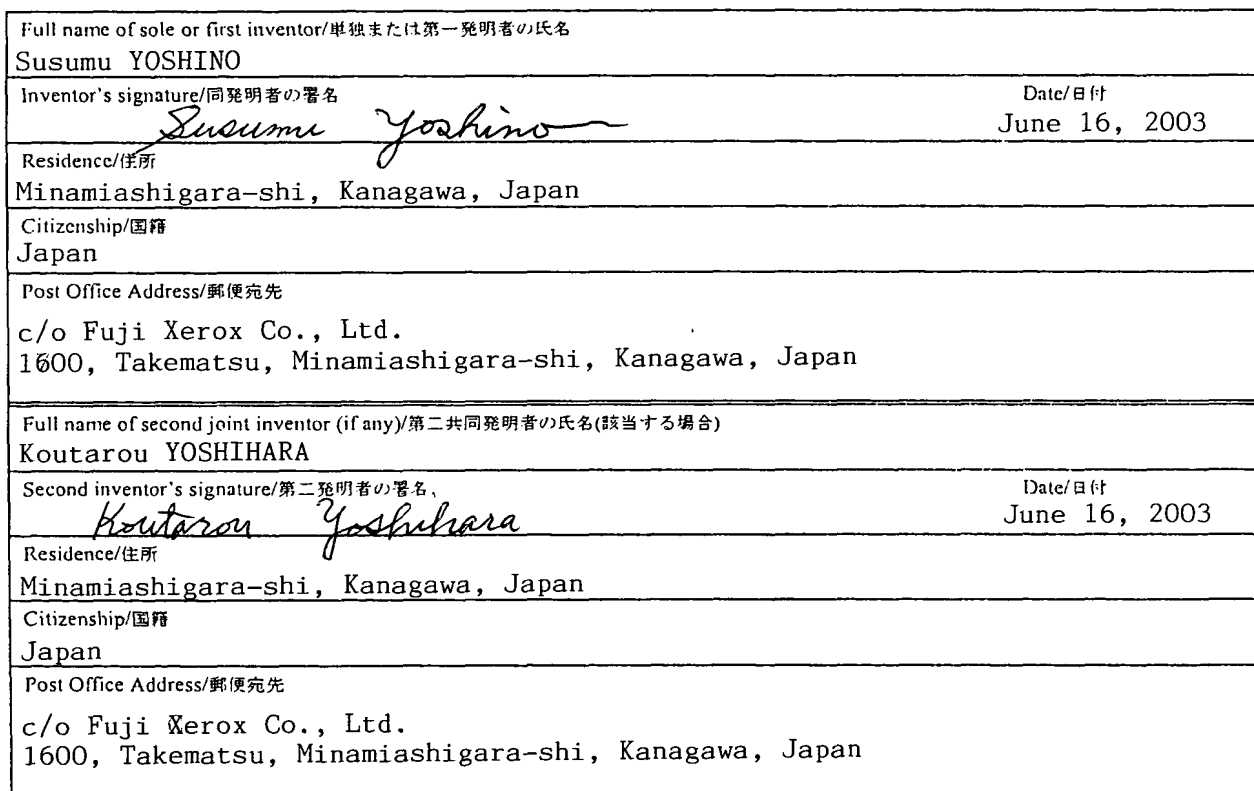 Full name of sole or first inventor/単独または第一発明者の氏名
Susumu YOSHINO
Inventor's signature/同発明者の署名 Date/日付
Susumu Yoshino June 16, 2003
Residence/住所
Minamiashigara-shi, Kanagawa, Japan
Citizenship/国籍
Japan
Post Office Address/郵便宛先
c/o Fuji Xerox Co., Ltd.
1600, Takematsu, Minamiashigara-shi, Kanagawa, Japan
Full name of second joint inventor (if any)/第二共同発明者の氏名(該当する場合)
Koutarou YOSHIHARA
Second inventor's signature/第二発明者の署名 Date/日付
Koutarou Yoshihara June 16, 2003
Residence/住所
Minamiashigara-shi, Kanagawa, Japan
Citizenship/国籍
Japan
Post Office Address/郵便宛先
c/o Fuji Xerox Co., Ltd.
1600, Takematsu, Minamiashigara-shi, Kanagawa, Japan